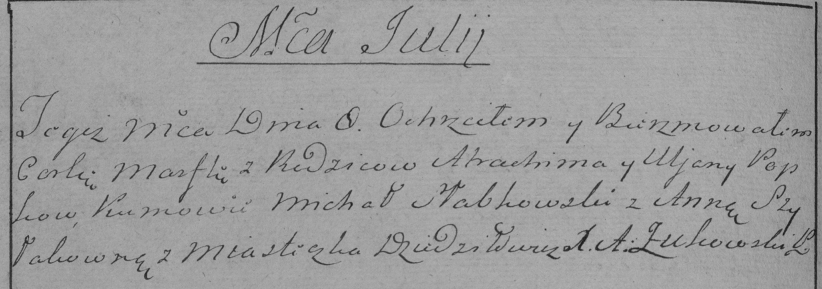 Mca Julij
Tegiż Mca Dnia 8. Ochrzciłem y Bierzmowałem
Corkię Marftę z Rodzicow Atrachima y Uljany Pop
kow, Kumowie Michał Nabkowski z Anną Szy
łakowną z Miasteczka Dziedziłowicz X. A. Żukowski